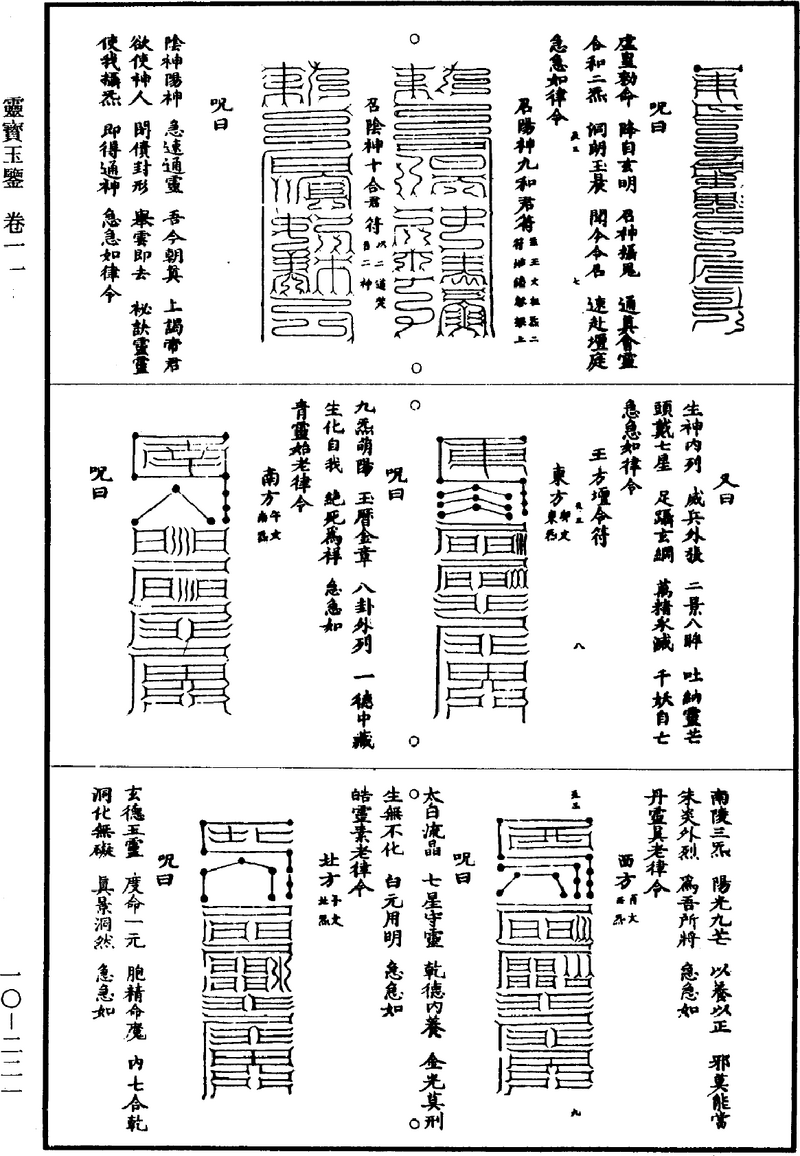 靈寶玉鑒 卷一一
一〇—二二一
呪曰
虛皇勑命 降自玄明 召神攝鬼 通真會靈
合和二炁 洞朗玉晨 聞今令召 速赴壇庭
急急如律令
七
召陽神九和君符
召陰神十合君符
呪曰
陰神陽神 急速通靈 吾今朝真 上謁帝君
欲使神人 開債封形 舉雲即去 祕訣靈靈
使我攝炁 即得通神 急急如律令
又曰
生神內列 威兵外張 二景八眸 吐納靈芒
頭戴七星 足躡玄綱 萬精永滅 千妖自亡
急急如律令
八
五方壇令符
東方 卯文 東炁
呪曰
九炁萌陽 玉曆金章 八卦外列 一德中藏
生化自我 絕死為祥 急急如
青靈始老律令
南方 午文 南炁
呪曰
南陵三炁 陽光九芒 以養以正 邪莫能當
朱炎外烈 為吾所將 急急如
丹靈真老律令
九
西方 酉文 西炁
呪曰
太白流晶 七星守靈 乾德內養 金光莫刑
生無不化 白元用明 急急如
皓靈素老律令
北方 子文 北炁
呪曰
玄德五靈 度命一元 胞精命魔 內七合乾
洞化無礙 真景洞然 急急如